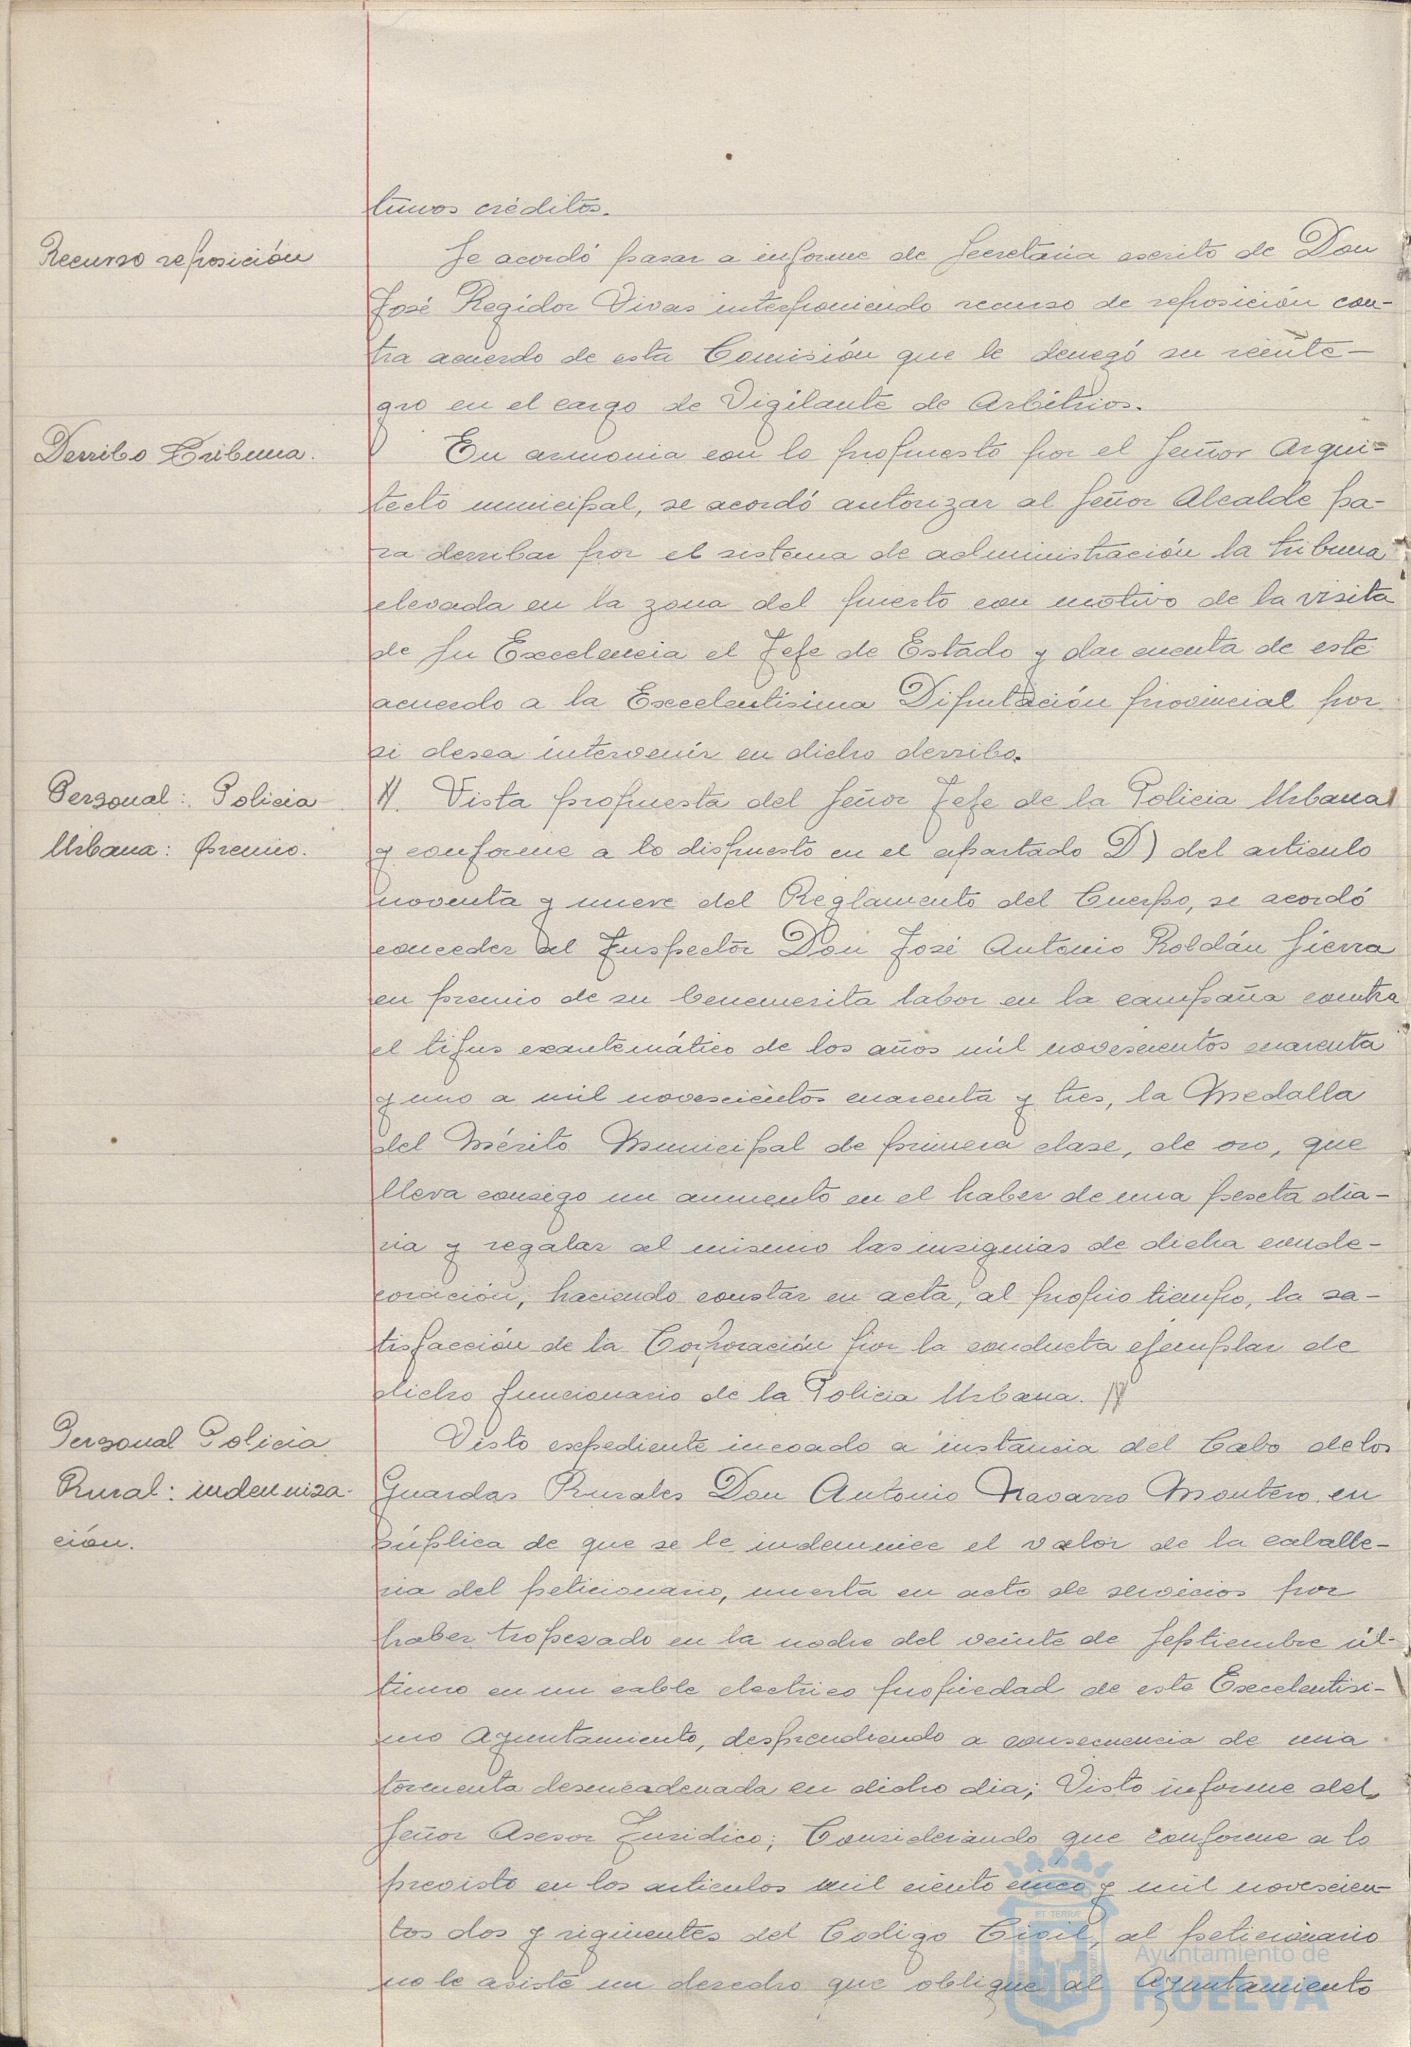 tunos créditos.
Recurso reposición
Se acordó pasar a informe de Secretaria escrito de Don
José Regidor Vivas interponiendo recurso de reposición con-
tra acuerdo de esta Comisión que le denegó su reinte-
gro en el cargo de Vigilante de Arbitrios.
Derribo Tribuna.
En armonia con lo propuesto por el Señor Arqui=
tecto municipal, se acordó autorizar al Señor Alcalde pa-
ra derribar por el sistema de administración la tribuna
elevada en la zona del puerto con motivo de la visita
de Su Excelencia el Jefe de Estado y dar cuenta de este
acuerdo a la Excelentisima Diputación provincial por
si desea intervenir en dicho derribo.
Personal: Policia
Urbana: premio.
Vista propuesta del Señor Jefe de la Policia Urbana
y conforme a lo dispuesto en el apartado D) del articulo
noventa y nueve del Reglamento del Cuerpo, se acordó
conceder al Inspector Don José Antonio Roldán Sierra
en premio de su benemerita labor en la campaña contra
el tifus exantemático de los años mil novescientos cuarenta
y uno a mil novescientos cuarenta y tres, la Medalla
del Mérito Municipal de primera clase, de oro, que
lleva consigo un aumento en el haber de una peseta dia-
ria y regalar al mismo las insignias de dicha conde-
coración, haciendo constar en acta, al propio tiempo, la sa-
tisfacción de la Corporación por la conducta ejemplar de
dicho funcionario de la Policia Urbana.
Personal Policia
Rural: indemniza-
ción.
Visto expediente incoado a instancia del Cabo de los
Guardas Rurales Don Antonio Navarro Montero en
súplica de que se le indemnice el valor de la caballe-
ria del peticionario, muerta en acto de servicios por
haber tropezado en la noche del veinte de Septiembre úl-
timo en un cable electrico propiedad de este Excelentisi-
mo Ayuntamiento, desprendiendo a consecuencia de una
tormenta desencadenada en dicho dia; Visto informe del
Señor Asesor Juridico; Considerando que conforme a lo
previsto en los articulos mil ciento cinco y mil novescien-
tos dos y siguientes del Codigo Civil, al peticionario
no le asiste un derecho que obligue al Ayuntamiento
Ayuntamiento de
HUELVA